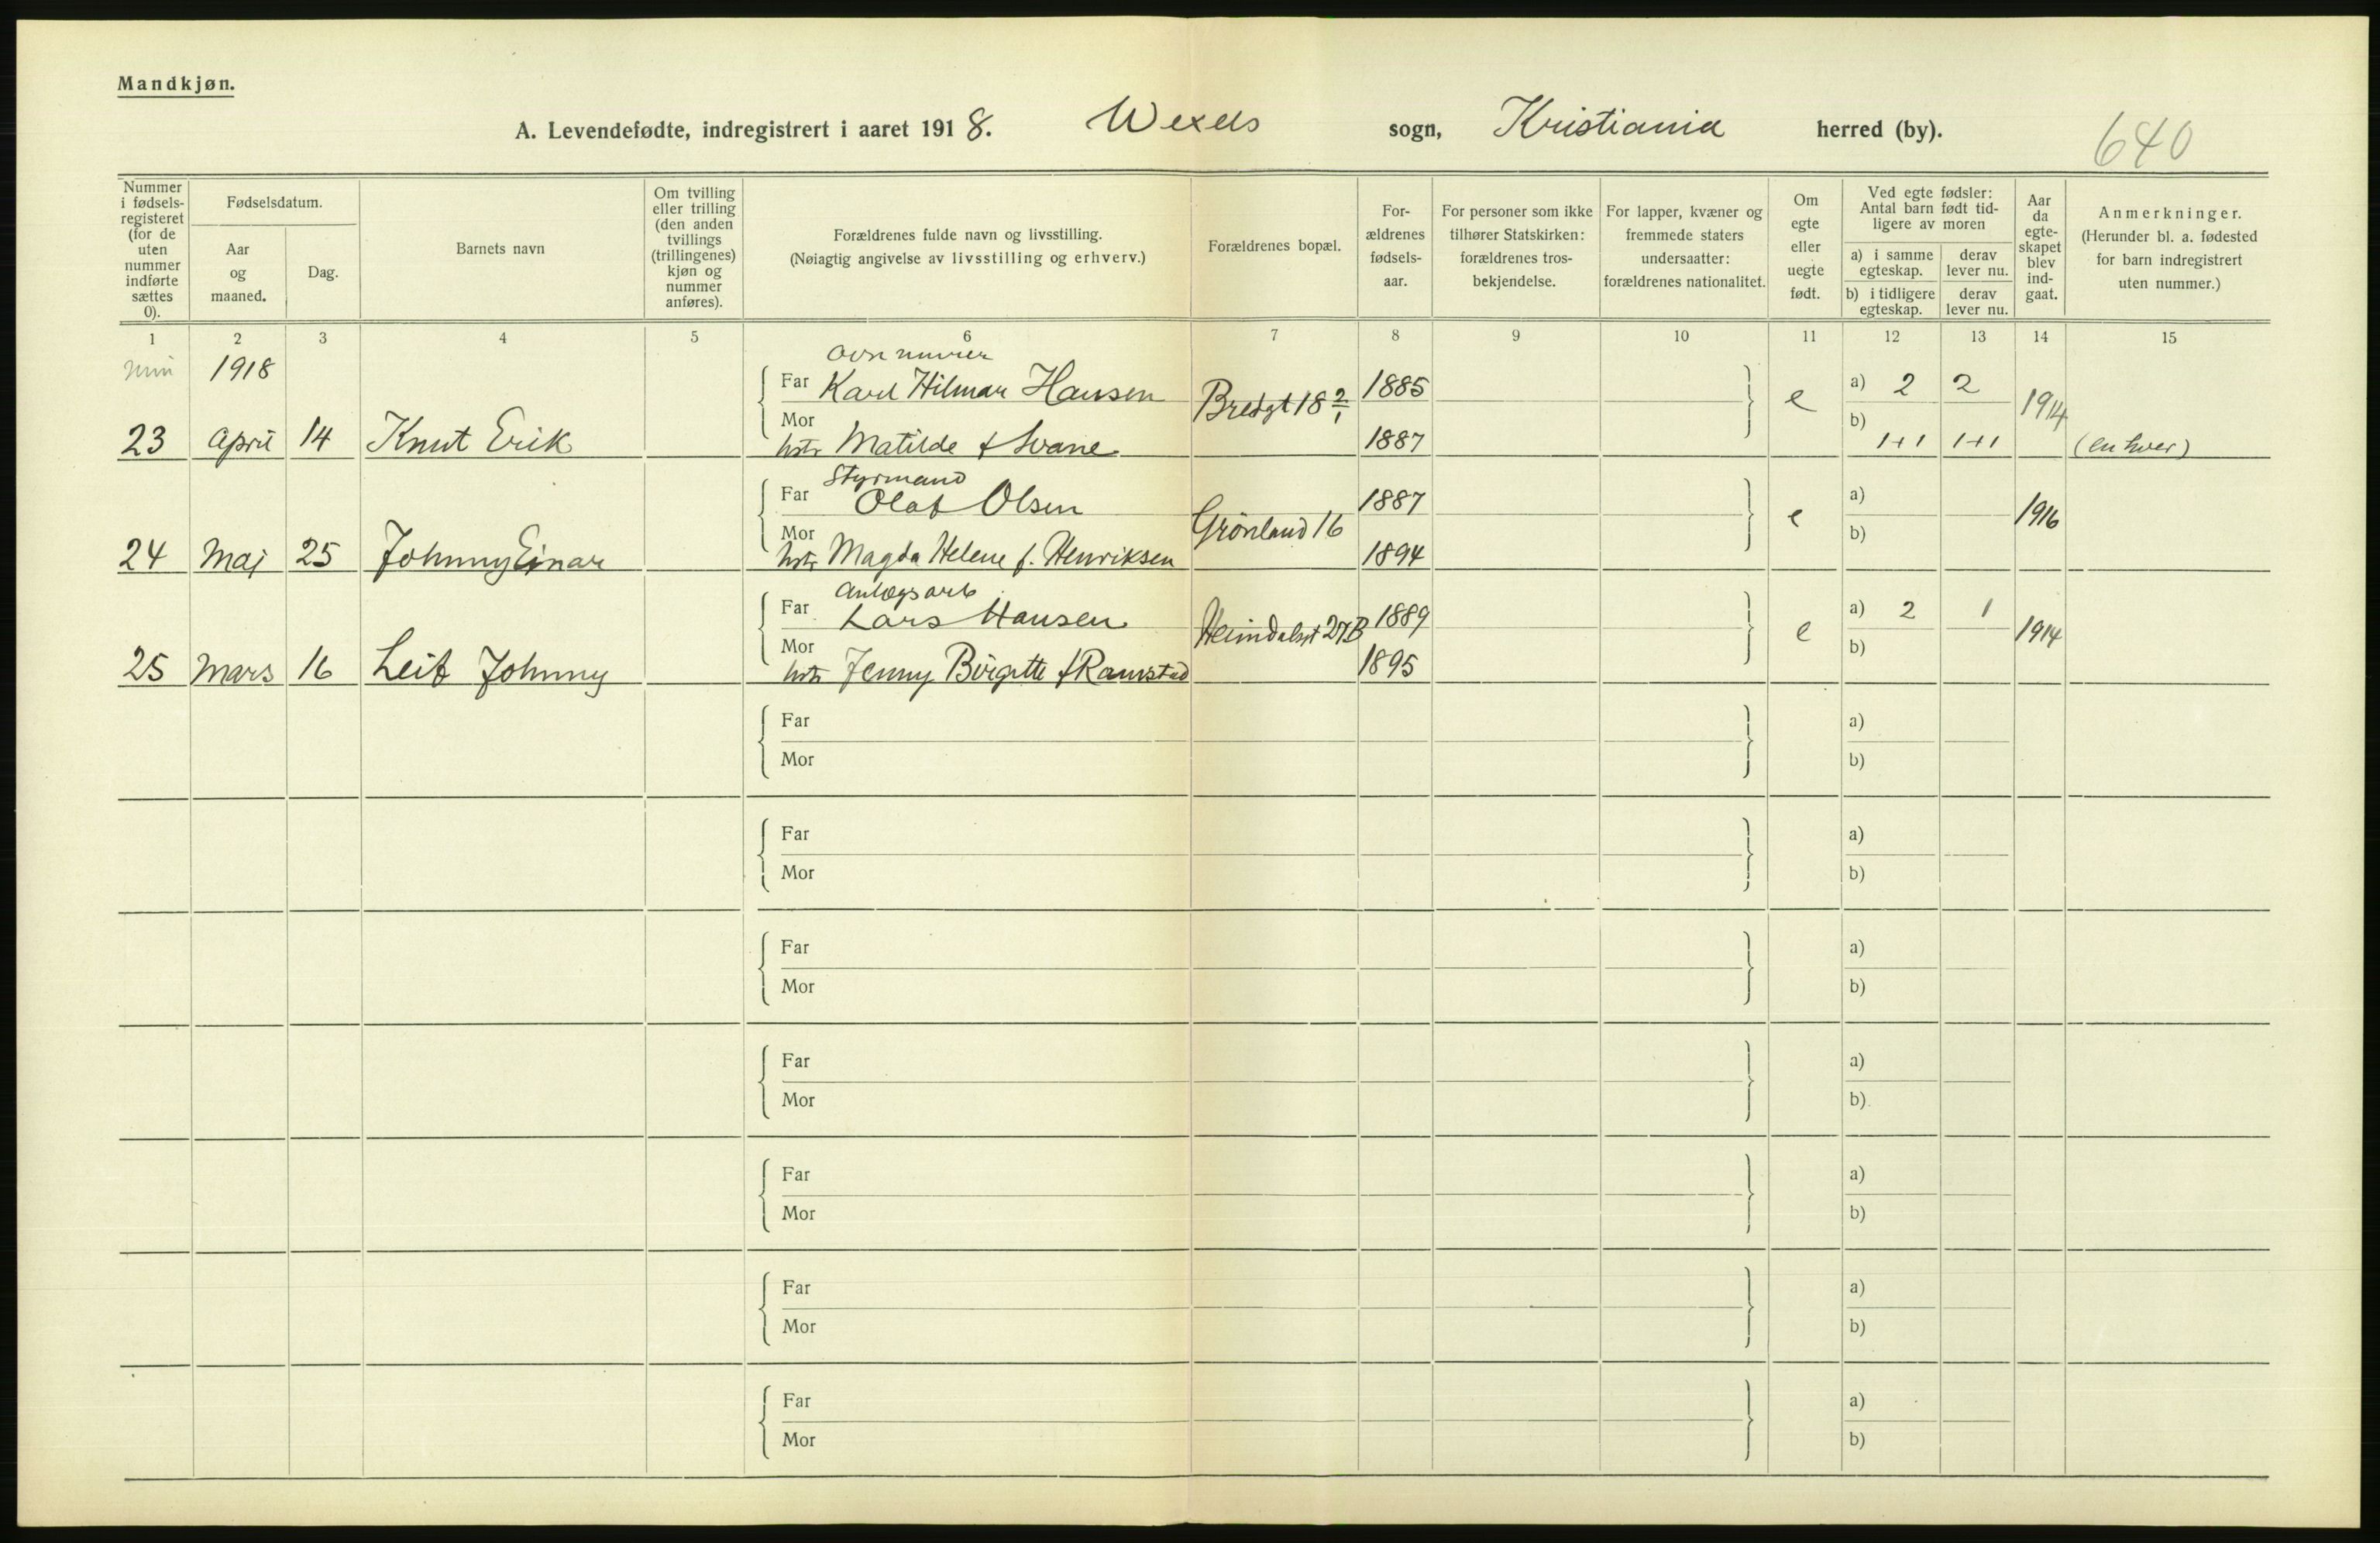 Mandkjøn.
A. Levendefødte, indregistrert i aaret 1918. Wexels sogn, Kristiania herred (by).
640
Nummer i fødsels-registeret (for de uten nummer indførte sættes 0).
Fødselsdatum.
Aar og maaned.
Dag.
Barnets navn
Om tvilling eller trilling (den anden tvillings (trillingenes) kjøn og nummer anføres).
Forældrenes fulde navn og livsstilling.
(Nøiagtig angivelse av livsstilling og erhverv.)
Forældrenes bopæl.
For-ældrenes fødsels-aar.
For personer som ikke tilhører Statskirken: forældrenes tros-bekjendelse.
For lapper, kvæner og fremmede staters undersaatter: forældrenes nationalitet.
Om egte eller uegte født.
Ved egte fødsler: Antal barn født tid-ligere av moren
a) i samme egteskap.
derav lever nu.
b) i tidligere egteskap.
derav lever nu.
Aar da egte-skapet blev ind-gaat.
Anmerkninger.
(Herunder bl. a. fødested for barn indregistrert uten nummer.)
1 2 3 4 5 6 7 8 9 10 11 12 13 14 15
1918
Far Karl Hilmar Hansen Bredgt 18 2/1 1885 e a) 2 2 1914
Mor
23 April 14 Knut Erik hstr Matilde f Svane 1887 b) 1+1 1+1 (en hver)
Styrmand
Far Olaf Olsen Grönland 16 1887 e a) 1916
Mor
24 Maj 25 Johnny Einar hstr Magda Helene f. Henriksen 1894 b)
Anlægsarb
Far Lars Hansen Heimdalsgt 27B 1889 e a) 2 1 1914
Mor
25 Mars 16 Leif Johnny hstr Jenny Birgitte f Ramstad 1895 b)
Far a)
Mor b)
Far a)
Mor b)
Far a)
Mor b)
Far a)
Mor b).
Far a)
Mor b)
Far a)
Mor b)
Far a)
Mor b)